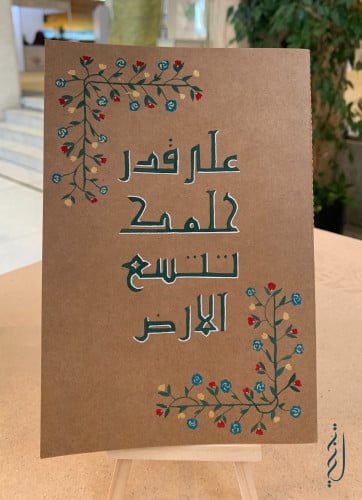 على قدر
حلمك
تتسع
الارض